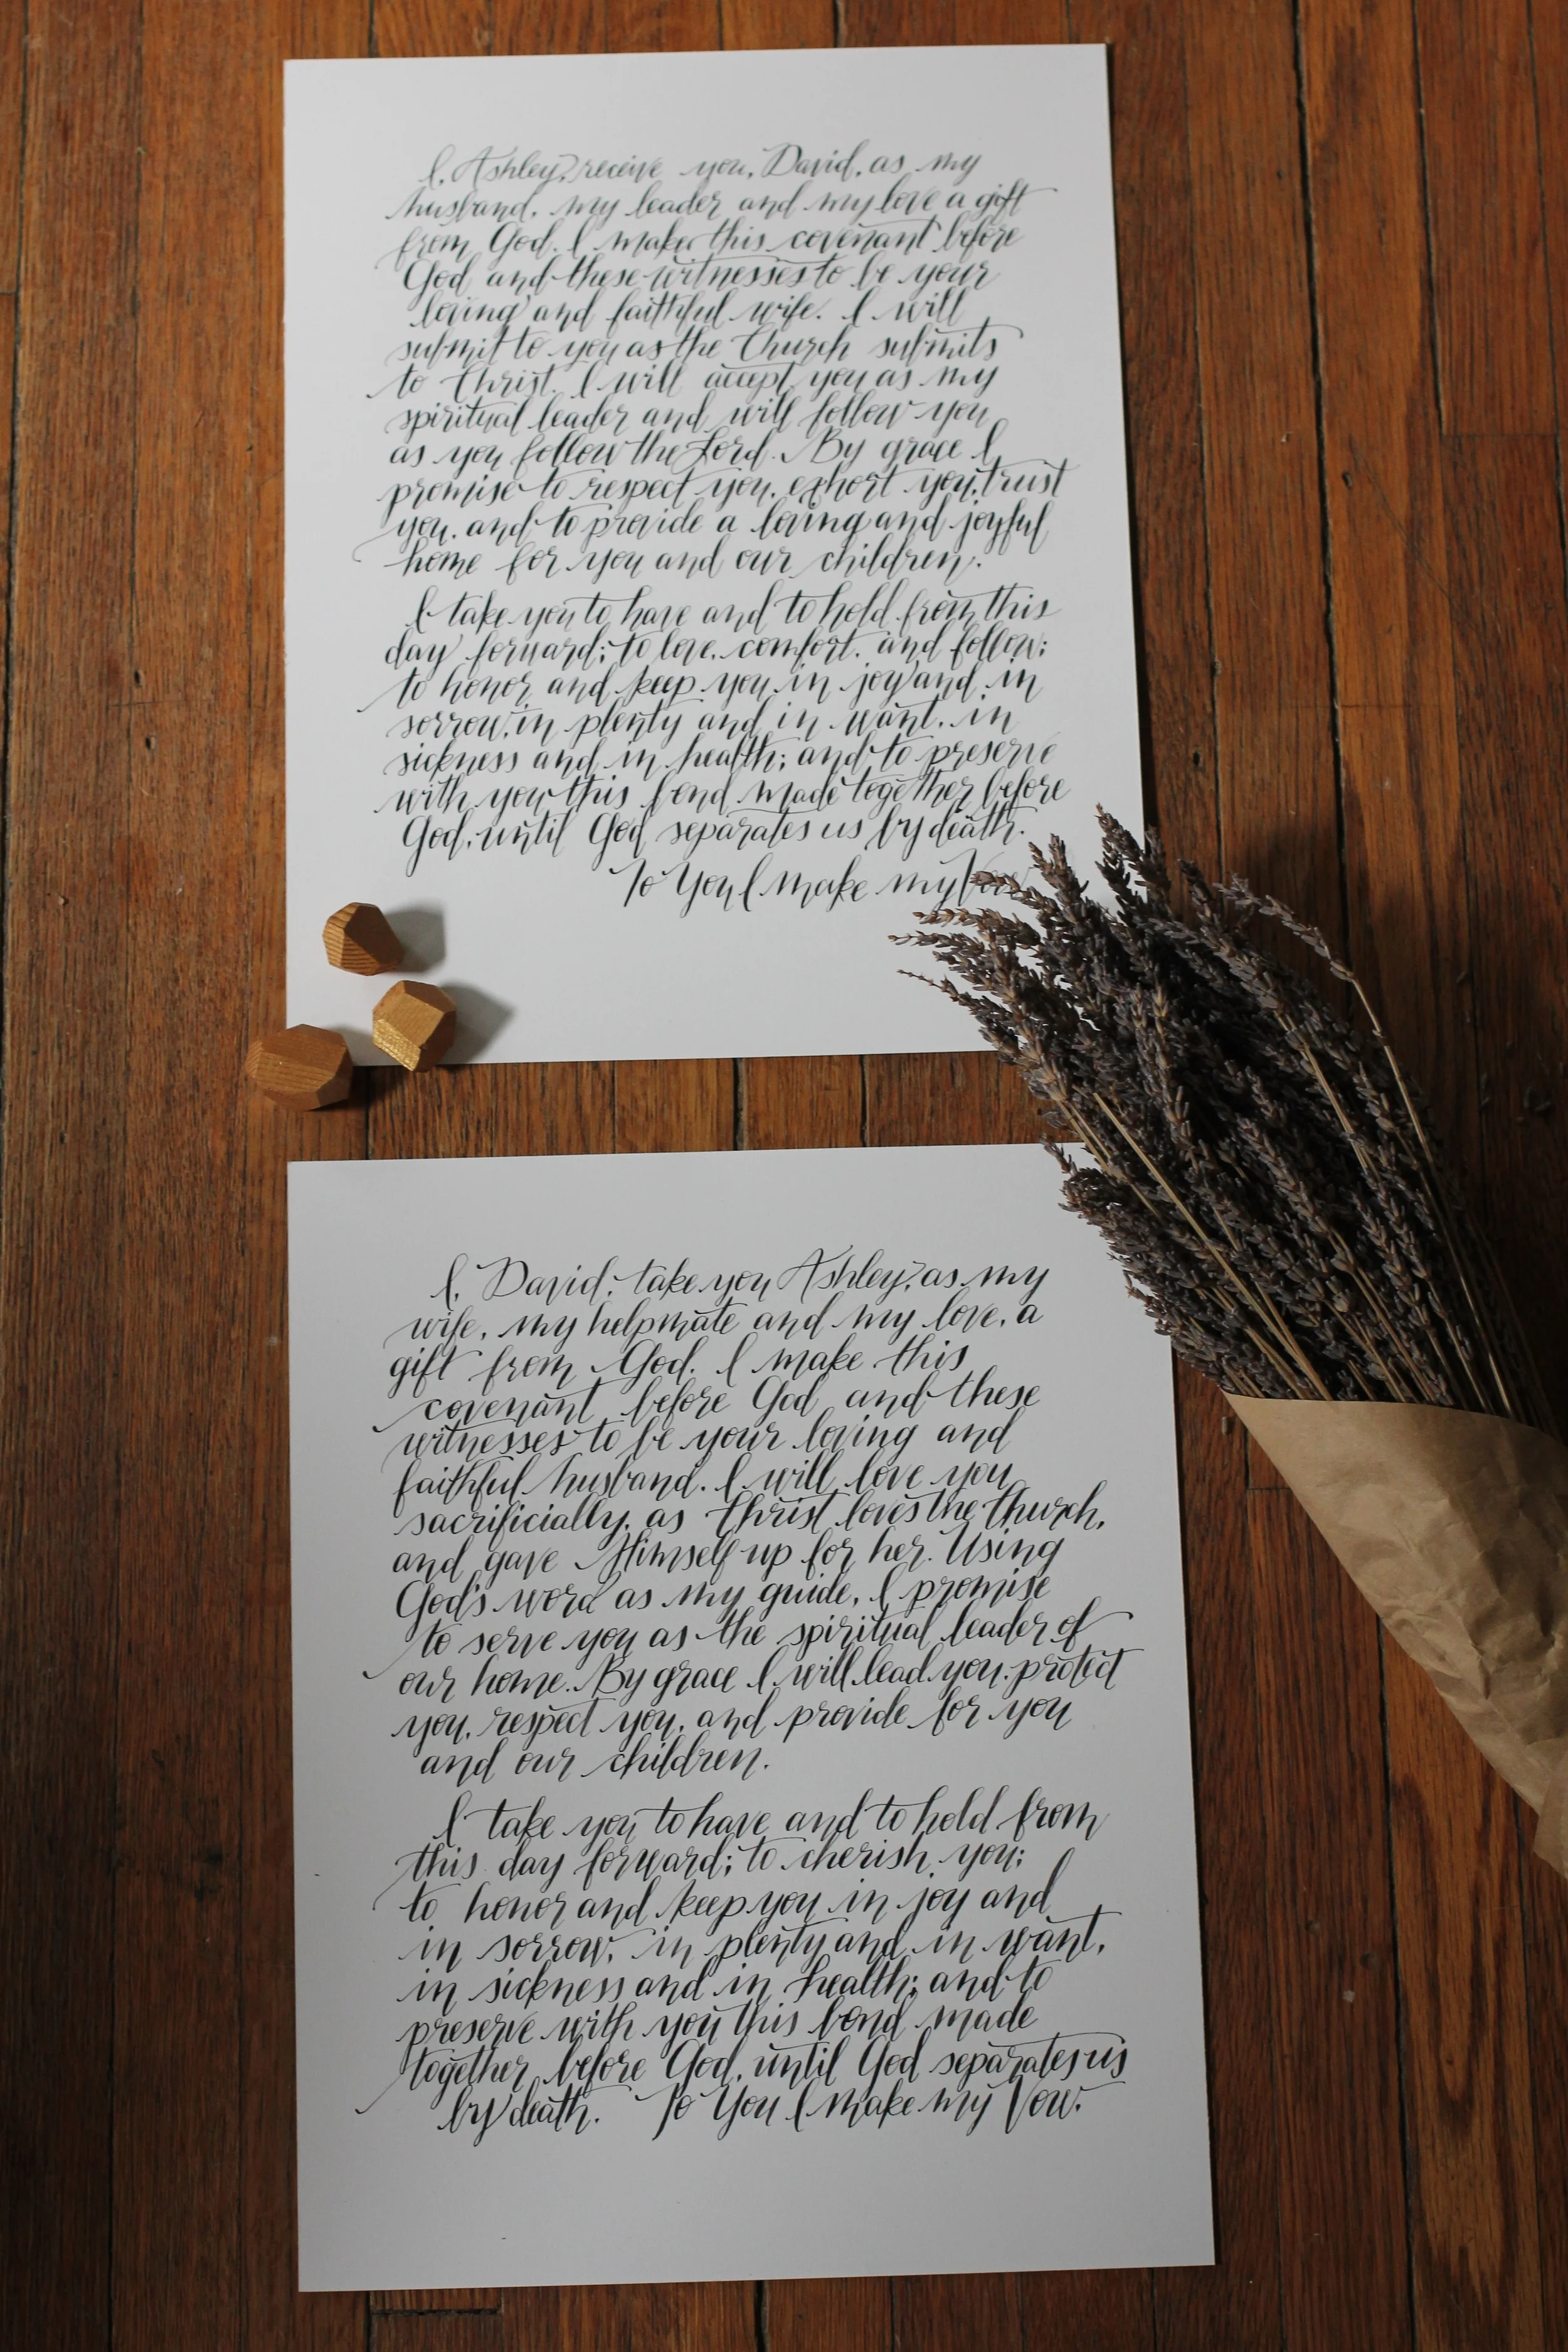 I, Ashley, receive you, David, as my
husband, my leader and my love a gift
from God. I make this covenant before
God and these witnesses to be your
loving and faithful wife. I will
submit to you as the Church submits
to Christ. I will accept you as my
spiritual leader and will follow you
as you follow the Lord. By grace I
promise to respect you, exhort you, trust
you, and to provide a loving and joyful
home for you and our children.
I take you to have and to hold from this
day forward; to love, comfort, and follow;
to honor and keep you in joy and in
sorrow, in plenty and in want, in
sickness and in health; and to preserve
with you this bond made together before
God, until God separates us by death.
To You I make my Vow
I, David, take you Ashley, as my
wife, my helpmate and my love, a
gift from God. I make this
covenant before God and these
witnesses to be your loving and
faithful husband. I will love you
sacrificially, as Christ loves the Church,
and gave Himself up for her. Using
God's word as my guide, I promise
to serve you as the spiritual leader of
our home. By grace I will lead you, protect
you, respect you, and provide for you
and our children.
I take you to have and to hold from
this day forward; to cherish you;
to honor and keep you in joy and
in sorrow, in plenty and in want,
in sickness and in health; and to
preserve with you this bond made
together before God, until God separates us
by death. To You I make my Vow.